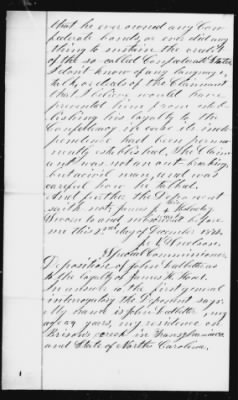 that he ever owned any Con-
federate bonds, or ever did any
thing to sustain the credit
of the so called Confederate States
I dont know of any language
talk, or deeds of the Claimant
that I deem would have
prevented him from estab-
lishing his loyalty to the
Confederacy in case its inde-
pendence had been perma-
nently established, The Claim-
ant was not an out breaking,
but a civil man, and was
careful how he talked.
And further the Deponent
saith not. James
Sworn to and subscribed before
me this 22nd day of December 1874
Special Commissioner.
Deposition of John Galbitten as
to the loyalty of James H. Hoxit.
In answer to the first general
interrogatory the Deponent says:
My name is John Galbitten, my
age 29 years, my residence on
creek in Transylvania
and State of North Carolina.